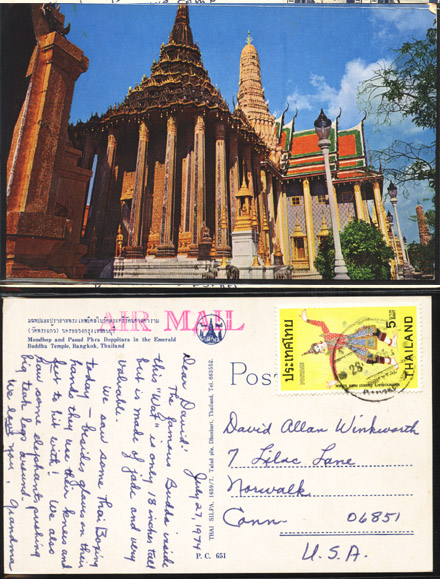 มณฑปและปราสาทพระเทพบิดรในพระศรีรัตนศาสดาราม
(วัดพระแก้ว) นครหลวงกรุงเทพธนบุรี
Mondhop and Pasad Phra Deppitara in the Emerald
Buddha Temple, Bangkok, Thailand
AIR MAIL
July 27, 1974
Dear David:
The famous Budda inside
this "Wat" is only 18 inches tall
but is made of jade and very
valuable.
We saw some Thai Boxing
today — besides gloves on their
hands they use their knees and
feet to hit with! We also
saw some elephants pushing
big teak logs around.
We love you, Grandma
P. C. 651
ประเทศไทย
5
THAILAND
David Allan Winkworth
7 Lilac Lane
Norwalk
Conn 06851
U.S.A.